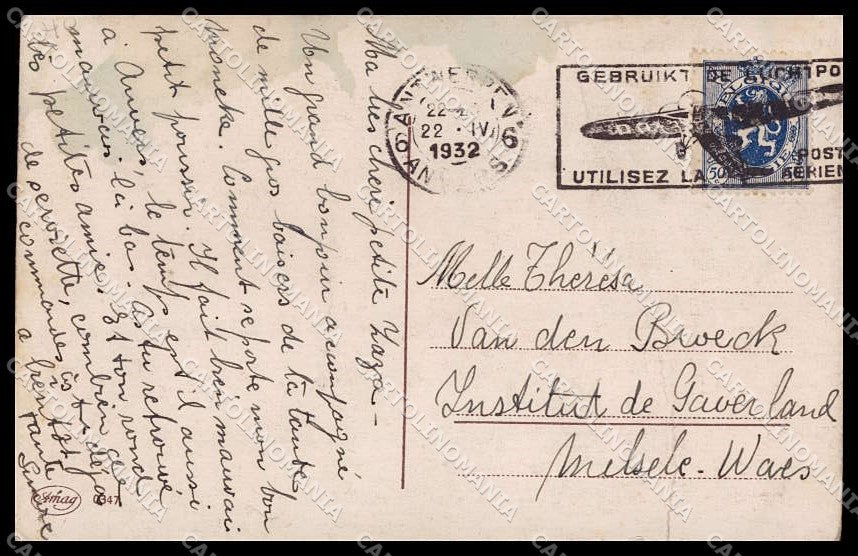 Ma très chère petite Zaza -
Un grand bonjour accompagné
de mille gros baisers de ta tante
Simoneke. Comment se porte mon bon
petit poussin. Il fait bien mauvais
a Anvers, le temps est il aussi
mauvais là bas. As tu retrouvé
tes petites amies. Et ton rond
de serviette, combien
commandes as tu déjà
a bientôt
tante
Simone
ANTWERPEN
22 . IV
1932
6 6
ANVERS
GEBRUIKT DE LUCHTPO
UTILISEZ LA POST
AERIEN
50
Melle Thérésa
Van den Broeck
Institut de Gaverland
Melsele-Waes
Amag
0347
CARTOLINOMANIA